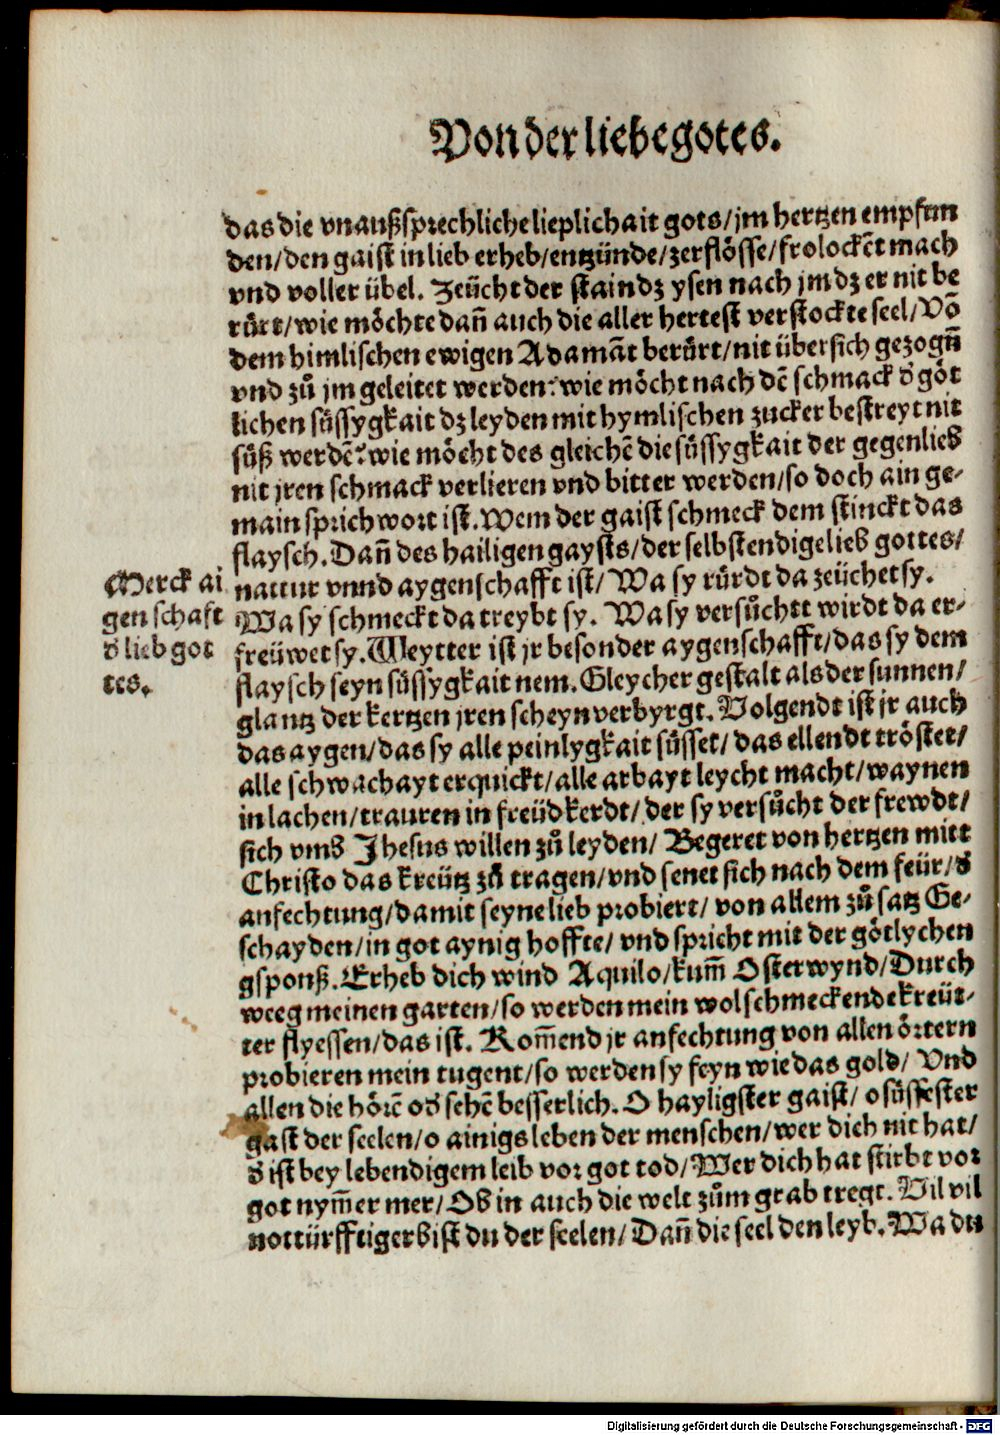 Von der liebe gotes.
das die vnaußsprechliche lieplichait gots/jm hertzen empfun
den/den gaist in lieb erheb/entzünde/zerflösse/frolockẽt mach
vnd voller übel. Zeücht der stain dz ysen nach jm dz er nit be
rürt/wie möchte dañ auch die aller hertest verstockte seel/Võ
dem himlischen ewigen Adamãt berürt/nit übersich gezogñ
vnd zů jm geleitet werden? wie möcht nach dẽ schmack ď göt
lichen süssygkait dz leyden mit hymlischen zucker bestreyt nit
süß werdẽ? wie möcht des gleichẽ die süssygkait der gegenlieb
nit jren schmack verlieren vnd bitter werden/so doch ain ge-
main sprichwort ist. Wem der gaist schmeck dem stinckt das
flaysch. Dañ des hailigen gaysts/der selbstendige lieb gottes/
Merck ai
genschaft
ď lieb got
tes.
nattur vnnd aygenschafft ist/ Wa sy rürdt da zeüchet sy.
Wa sy schmeckt da treybt sy. Wa sy versůchtt wirdt da er-
freüwet sy. Weytter ist jr besonder aygenschafft/das sy dem
flaysch seyn süssygkait nem. Gleycher gestalt als der sunnen/
glantz der kertzen jren scheyn verbyrgt. Volgendt ist jr auch
das aygen/das sy alle peinlygkait süsset/das ellendt tröstet/
alle schwachayt erquickt/alle arbayt leycht macht/waynen
in lachen/trauren in freüd kerdt/ der sy versůcht der frewdt/
sich vmb Jhesus willen zů leyden/ Begeret von hertzen mitt
Christo das kreütz zů tragen/vnd senet sich nach dem feür/ď
anfechtung/damit seyne lieb probiert/ von allem zůsatz Ge-
schayden/in got aynig hoffte/ vnd spricht mit der götlychen
gsponß. Erheb dich wind Aquilo/kum̃ Osterwynd/Durch
weeg meinen garten/so werden mein wolschmeckende kreüt-
ter flyessen/das ist. Kom̃end jr anfechtung von allen örtern
probieren mein tugent/so werden sy feyn wie das gold/ Vnd
allen die hörẽ oď sehẽ besserlich. O hayligster gaist/ o süssester
gast der seelen/o ainigs leben der menschen/wer dich nit hat/
ď ist bey lebendigem leib vor got tod/Wer dich hat stirbt vor
got nym̃er mer/Ob in auch die welt zům grab tregt. Vil vil
nottürfftiger bist du der seelen/Dañ die seel den leyb. Wa du
Digitalisierung gefördert durch die Deutsche Forschungsgemeinschaft - DFG